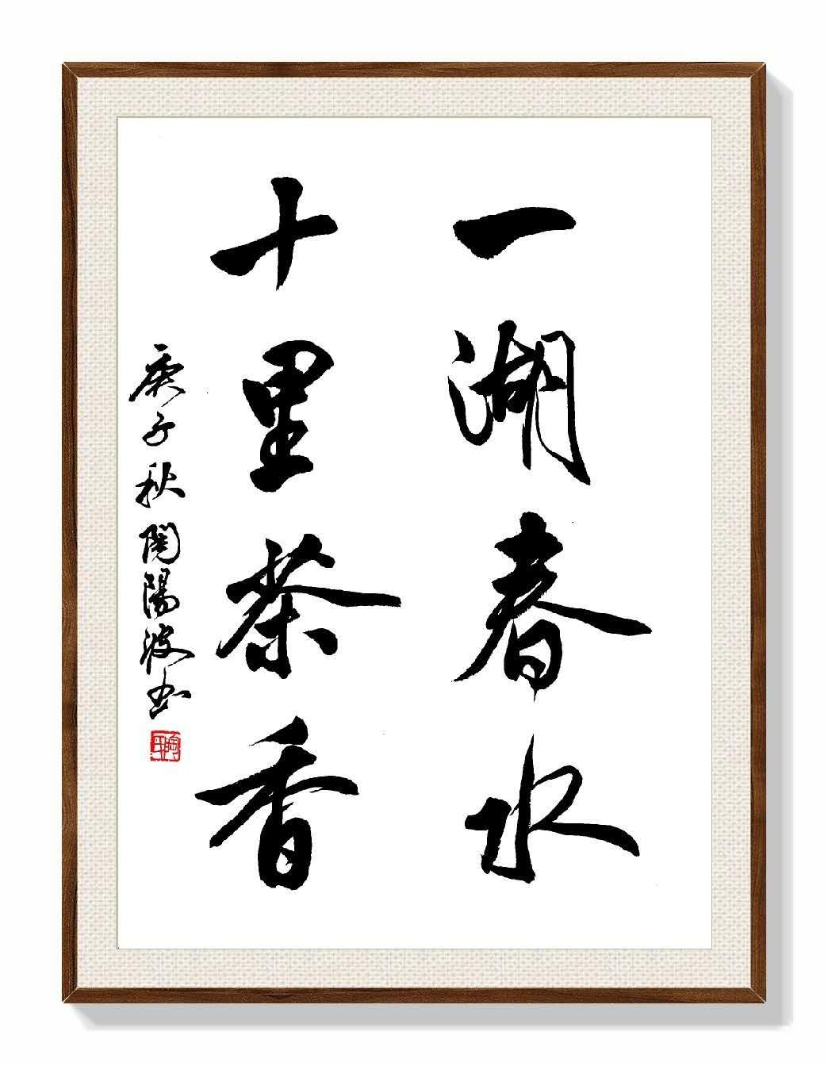 一湖春水
十里茶香
庚子秋閔陽波书